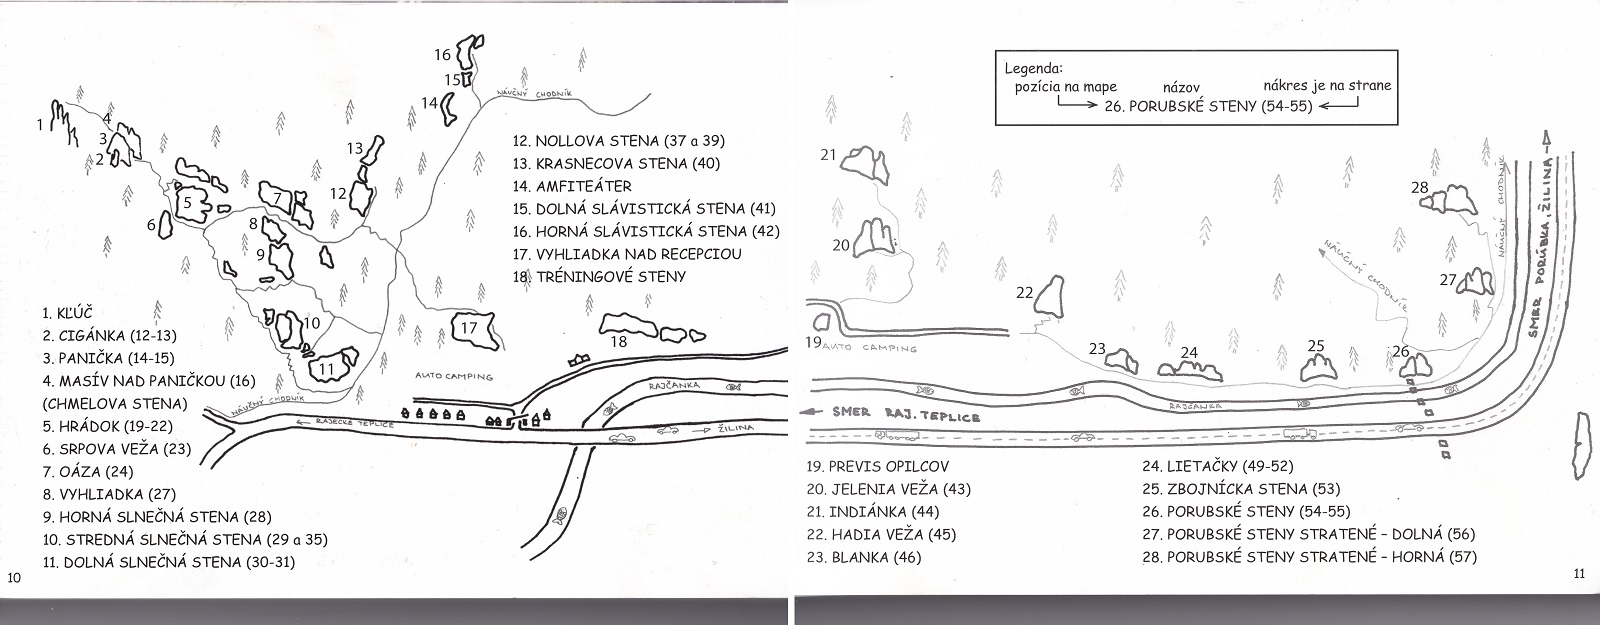 16
15
14
NÁUČNÝ CHODNÍK
1
4
3
2
13
12
5
7
6
8
9
10
11
17
18
12. NOLLOVA STENA (37 a 39)
13. KRASNECOVA STENA (40)
14. AMFITEÁTER
15. DOLNÁ SLÁVISTICKÁ STENA (41)
16. HORNÁ SLÁVISTICKÁ STENA (42)
17. VYHLIADKA NAD RECEPCIOU
18. TRÉNINGOVÉ STENY
1. KĽÚČ
2. CIGÁNKA (12-13)
3. PANIČKA (14-15)
4. MASÍV NAD PANIČKOU (16)
(CHMELOVA STENA)
5. HRÁDOK (19-22)
6. SRPOVA VEŽA (23)
7. OÁZA (24)
8. VYHLIADKA (27)
9. HORNÁ SLNEČNÁ STENA (28)
10. STREDNÁ SLNEČNÁ STENA (29 a 35)
11. DOLNÁ SLNEČNÁ STENA (30-31)
AUTO CAMPING
RAJČANKA
NÁUČNÝ CHODNÍK
RAJECKÉ TEPLICE
ŽILINA
10
Legenda:
pozícia na mape názov nákres je na strane
26. PORUBSKÉ STENY (54-55)
21
20
22
28
27
NÁUČNÝ CHODNÍK
NÁUČNÝ CHODNÍK
SMER PORÚBKA, ŽILINA
19
AUTO CAMPING
23
24
25
26
RAJČANKA
SMER RAJ. TEPLICE
19. PREVIS OPILCOV
20. JELENIA VEŽA (43)
21. INDIÁNKA (44)
22. HADIA VEŽA (45)
23. BLANKA (46)
24. LIETAČKY (49-52)
25. ZBOJNÍCKA STENA (53)
26. PORUBSKÉ STENY (54-55)
27. PORUBSKÉ STENY STRATENÉ - DOLNÁ (56)
28. PORUBSKÉ STENY STRATENÉ - HORNÁ (57)
11